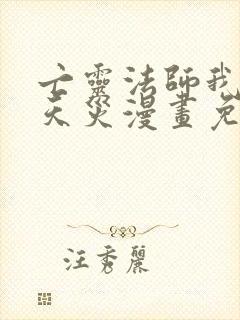 亡靈法師我
天災漫畫免
汪秀麗